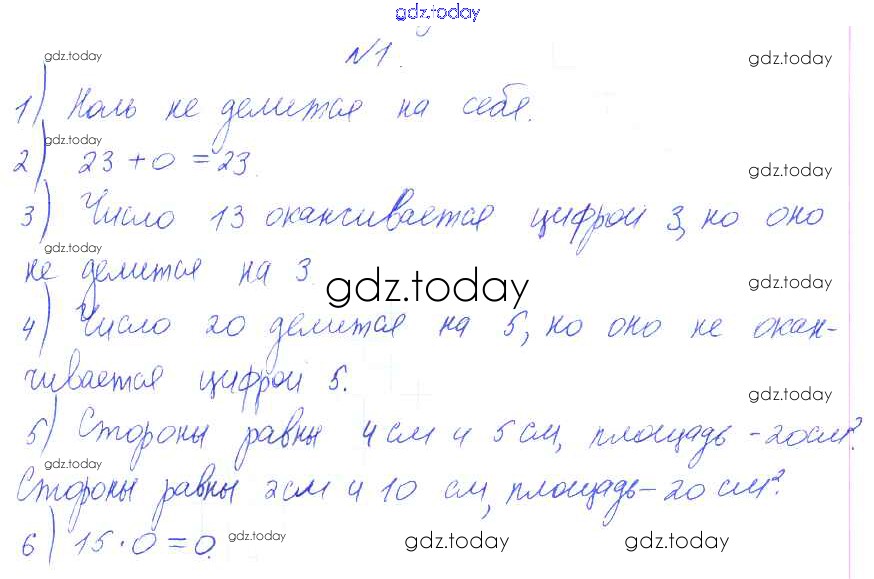 gdz.today
№1.
gdz.today gdz.today
1) Ноль не делится на себя.
gdz.today
2) 23 + 0 = 23.
gdz.today
3) Число 13 оканчивается цифрой 3, но оно
gdz.today
не делится на 3.
gdz.today
gdz.today
4) Число 20 делится на 5, но оно не окан-
чивается цифрой 5.
gdz.today
5) Стороны равны 4 см и 5 см, площадь - 20 см².
gdz.today
Стороны равны 2 см и 10 см, площадь - 20 см².
6) 15 · 0 = 0.
gdz.today gdz.today gdz.today